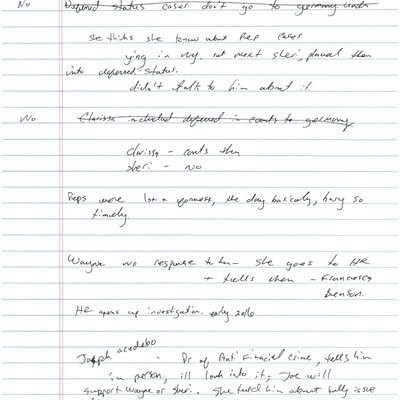 No Deferred status cases don't go to germany under
she thinks she knew about Rep cases
ying in ny. not meet sheri, placed them
into deferred-status.
didn't talk to him about it
No Clarissa included deferred in counts to germany
clarissa - counts them
sheri - No
Reps were 1st + the day basically, so
timely.
Wayne no response to her - she goes to HR
+ tells them - Francesca
Benson.
HR opens up investigation. early 2016
Joseph acedebo - Dr of Anti Financial crime, tells him
in person, ill look into it; Joe will
support Wayne or sheri. She told him about bully issue